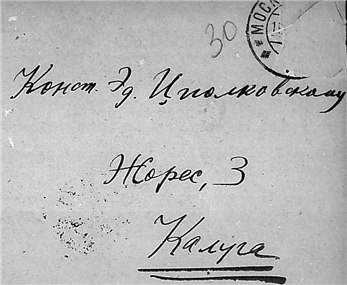 30
МОСК
Конст. Эд. Циолковскому
Жорес, 3
Калуга